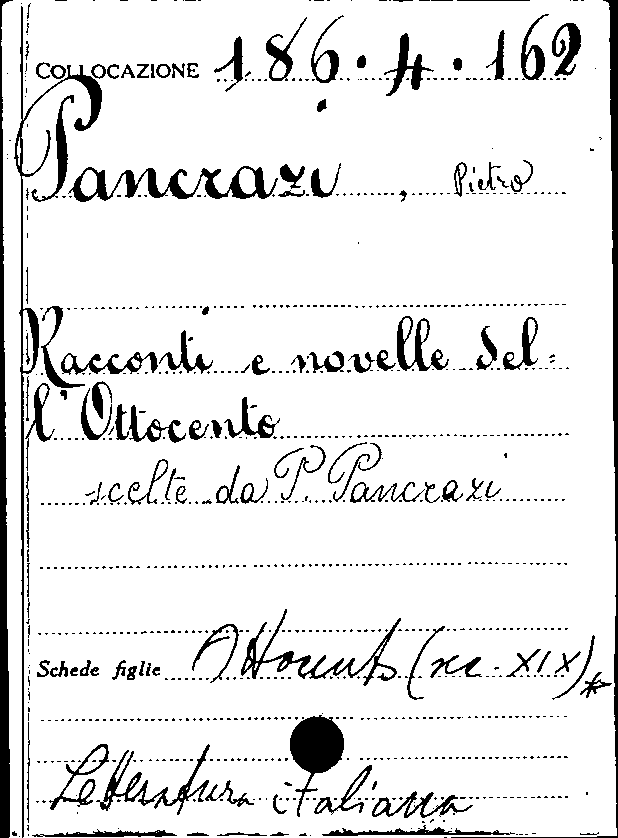 COLLOCAZIONE 186.4.162
Pancrazi, Pietro
Racconti e novelle del=
l'Ottocento
scelte da P. Pancrazi
Schede figlie Ottocento (sec. XIX)*
Letteratura italiana